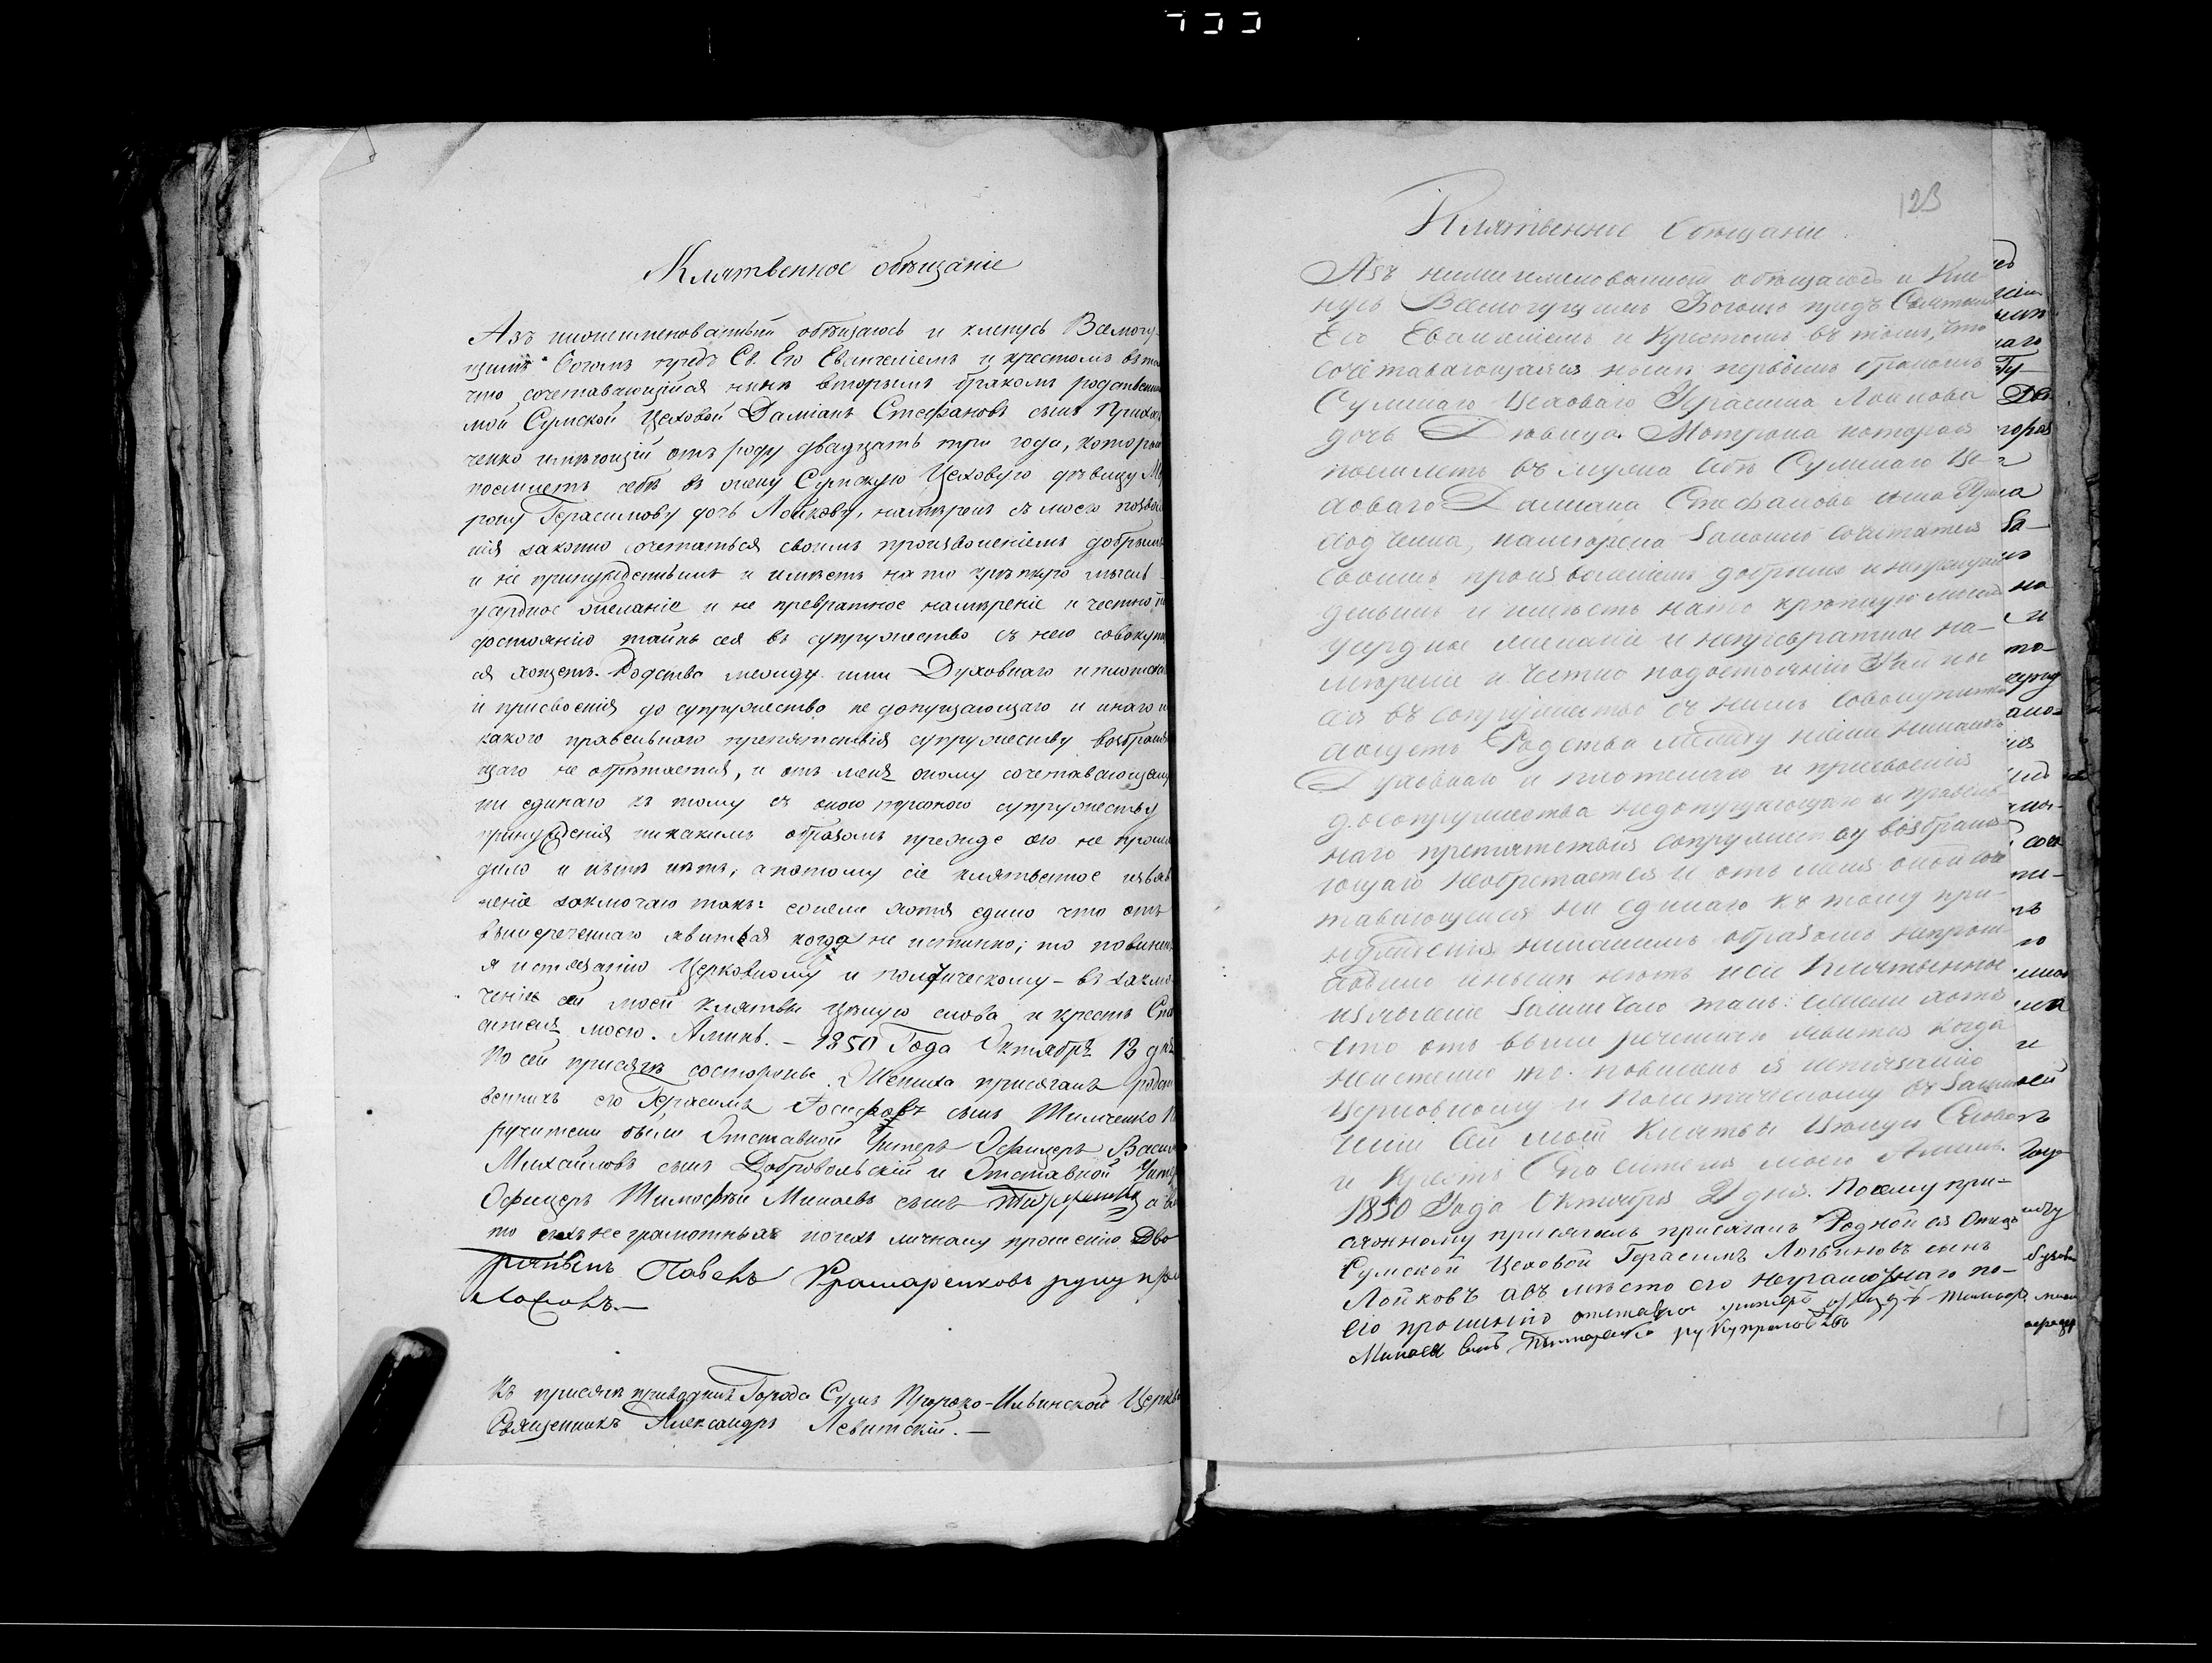 Клятвенное обѣщаніе
Азъ нижеименованный обѣщаюсь и кленусь Всемогу-
щимъ Богомъ предъ Св. Его Евангеліемъ и крестомъ въ
что сочетавающійся нынѣ вторымъ бракомъ родственни
мой Сумской Цеховой Даміанъ Стефановъ сынъ Приход
ченко имѣющій отъ роду двадцать три года, которой
поемлетъ себѣ въ жену Сумскую Цеховую дѣвицу Мо
рону Герасимову дочь Лойкову, намѣренъ съ моего позво
нія законно сочетаться своимъ произволеніемъ добрымъ
и не принужденнымъ и имѣетъ на то крѣпкую мысль
усердное желаніе и не превратное намѣреніе и честно по
достоянію тайнѣ сея въ супружество съ нею совокупи
ся хощетъ. Родства между ими Духовнаго и плотска
и присвоенія до супружество не допущающаго и инаго ни
какого правсльнаго препятствія супружеству возбраня
щаго не обрѣтается, и отъ меня оному сочетавающему
ни единаго къ тому съ оною супружеству
принужденія никакимъ образомъ прежде сего не проис
дило и нынѣ нѣтъ, а потому сіе клятвенное изъяв
леніе заключаю такъ: ежели хотя едино что отъ
вышереченнаго явиться когда не истинно; то повинен
я истязанію Церковному и политическому – въ заклю
ченіе сей моей клятвы цѣлую слова и крестъ Спа
сителя моего. Аминь. – 1850 Года Октября 12 дня
По сей присягѣ состороны Жениха присягалъ родст
венникъ его Герасимъ Іосифовъ сынъ Тимченко По
ручители были Отставной Унтеръ Офицеръ Васил
Михайловъ сынъ Добровольскій и Отставной Унтер
Офицеръ Тимофѣй Минаевъ сынъ а вм
то ихъ неграмотныхъ по ихъ личному прошенію Дво
рянинъ Павелъ Крамаренковъ руку при
ложилъ.—
Къ присягѣ приводилъ Города Сумъ Пророко-Ильинской Церкви
Священникъ Александръ Левитскій. —
123
Клятвенное обѣщаніе.
Азъ нижеименованный обѣщаюсь и Кле-
нусь Всемогущимъ Богомъ предъ Святымъ
Его Евангеліемъ и Крестомъ въ томъ, что
сочетавающаяся нынѣ первымъ бракомъ
Сумскаго Цеховаго Герасима Лойкова
дочь Дѣвица Мотрона которая
поемлетъ въ мужа себѣ Сумскаго Це-
ховаго Даміана Стефанова сына При
ходченка, намѣрена законно сочетатся
своимъ произволеніемъ добрымъ и непринуж
деннымъ и имѣетъ нато крѣпкую мысль
усердное желаніе и непревратное на-
мѣреніе и Честно подостоянію Тайны
сея въ сопружество съ нимъ совокупится
хощетъ Родства между ними никакъ
Духовнаго и плотскаго и присвоенія
досопружества недопущающаго и правель-
наго препятствія сопружеству возбраня-
ющаго необретается и отъ меня оной соче
тавающейся ни единаго къ тому при-
нужденія никакимъ образомъ непроис-
ходило инынѣ нѣтъ исіе Клятвенное
изъявленіе заключаю такъ: ежели хотя
что отъ выше реченнаго явится когда
неистенно то повиненъ я истязанію
Церковному и Политическому въ заклю
ченіи сей моей Клятвы Цѣлую Слова
и Крестъ Спасителя моего Аминь.
1850 Года Октября 21 дня. Посему при-
сяжному присягалъ Родной ея Отецъ
Сумской Цеховой Герасимъ Логвиновъ сынъ
Лойковъ авъ мѣсто его неграмотнаго по-
его прошенію отставной унтеръ офицеръ Тимофей
Минаевъ сынъ руку приложилъ